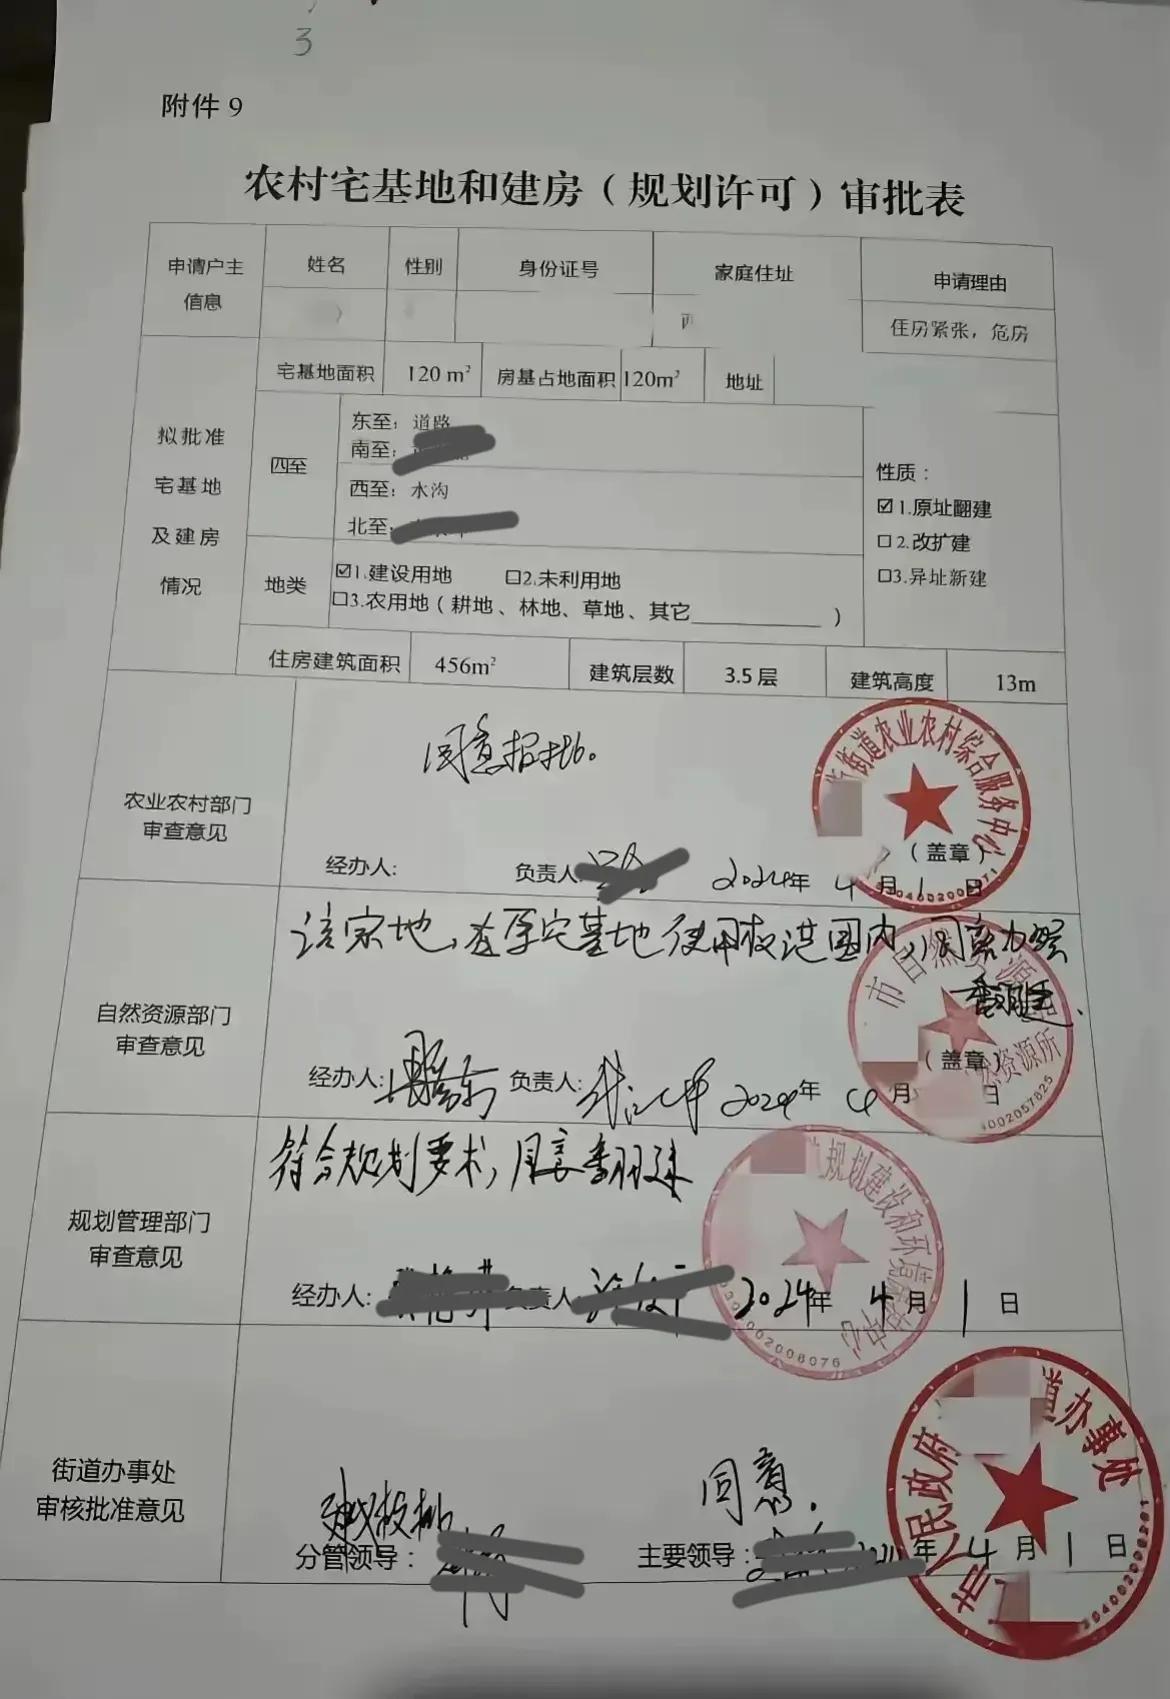 3
附件 9
农村宅基地和建房（规划许可）审批表
申请户主信息 姓名 性别 身份证号 家庭住址 申请理由
住房紧张，危房
拟批准宅基地及建房情况
宅基地面积 120 m² 房基占地面积 120m² 地址
四至
东至：道路
南至：
西至：水沟
北至：
性质：
☑1.原址翻建
□2.改扩建
□3.异址新建
地类
☑1.建设用地 □2.未利用地
□3.农用地（耕地、林地、草地、其它________）
住房建筑面积 456m² 建筑层数 3.5层 建筑高度 13m
农业农村部门审查意见
同意报批。
街道农业农村综合服务中心
（盖章）
经办人: 负责人 2024年 4月 1日
自然资源部门审查意见
该宗地，在原宅基地使用权范围内，同意办理
翻建.
市自然资源 资源所
（盖章）
经办人: 负责人: 2024年 4月 日
3002057825
规划管理部门审查意见
符合规划要求，同意翻建
规划建设和环境 中心
经办人: 负责人 2024年 4月 1日
街道办事处审核批准意见
同意.
市人民政府 道办事处
分管领导： 主要领导： 年 4月 1日